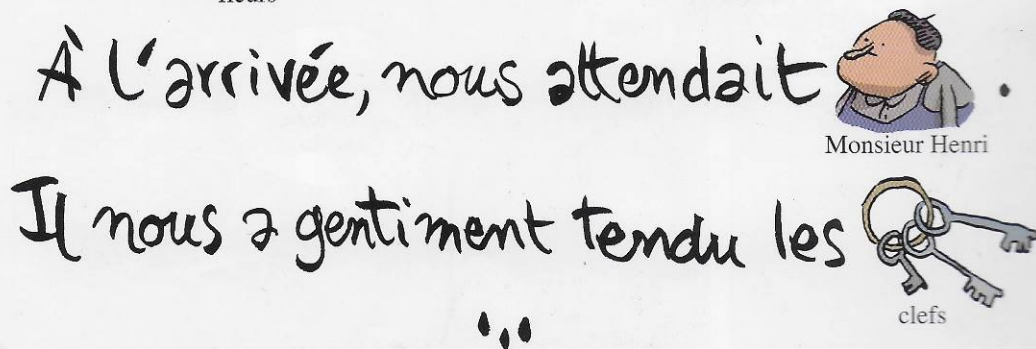 À l'arrivée, nous attendait .
Monsieur Henri
Il nous a gentiment tendu les
clefs